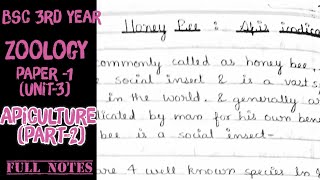 BSC 3RD YEAR
ZOOLOGY
PAPER -1
(UNIT-3)
APICULTURE
(PART-2)
FULL NOTES
Honey Bee : Apis indica
commonly called as honey bee.
social insect & is a vast
in the world. & generally a
licated by man for his own bene
bee is a social insect-
are 4 well known species in